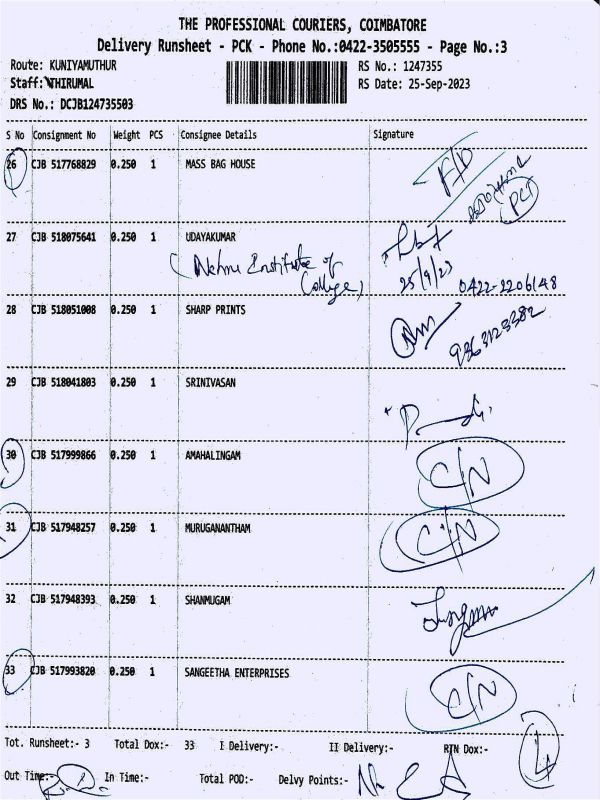 THE PROFESSIONAL COURIERS, COIMBATORE
Delivery Runsheet - PCK - Phone No.:0422-3505555 - Page No.:3
Route: KUNIYAMUTHUR RS No.: 1247355
Staff: THIRUMAL RS Date: 25-Sep-2023
DRS No.: DCJB124735503
S No Consignment No Weight PCS Consignee Details Signature
26 CJB 517768829 0.250 1 MASS BAG HOUSE
27 CJB 518075641 0.250 1 UDAYAKUMAR
(Nehru Institute of
College)
25/9/23 0422-2206148
28 CJB 518051008 0.250 1 SHARP PRINTS
9363123382
29 CJB 518041803 0.250 1 SRINIVASAN
30 CJB 517999866 0.250 1 AMAHALINGAM C/N
31 CJB 517948257 0.250 1 MURUGANANTHAM C/N
32 CJB 517948393 0.250 1 SHANMUGAM
33 CJB 517993820 0.250 1 SANGEETHA ENTERPRISES C/N
Tot. Runsheet:- 3 Total Dox:- 33 I Delivery:- II Delivery:- RTN Dox:- 4
Out Time:- In Time:- Total POD:- Delvy Points:-